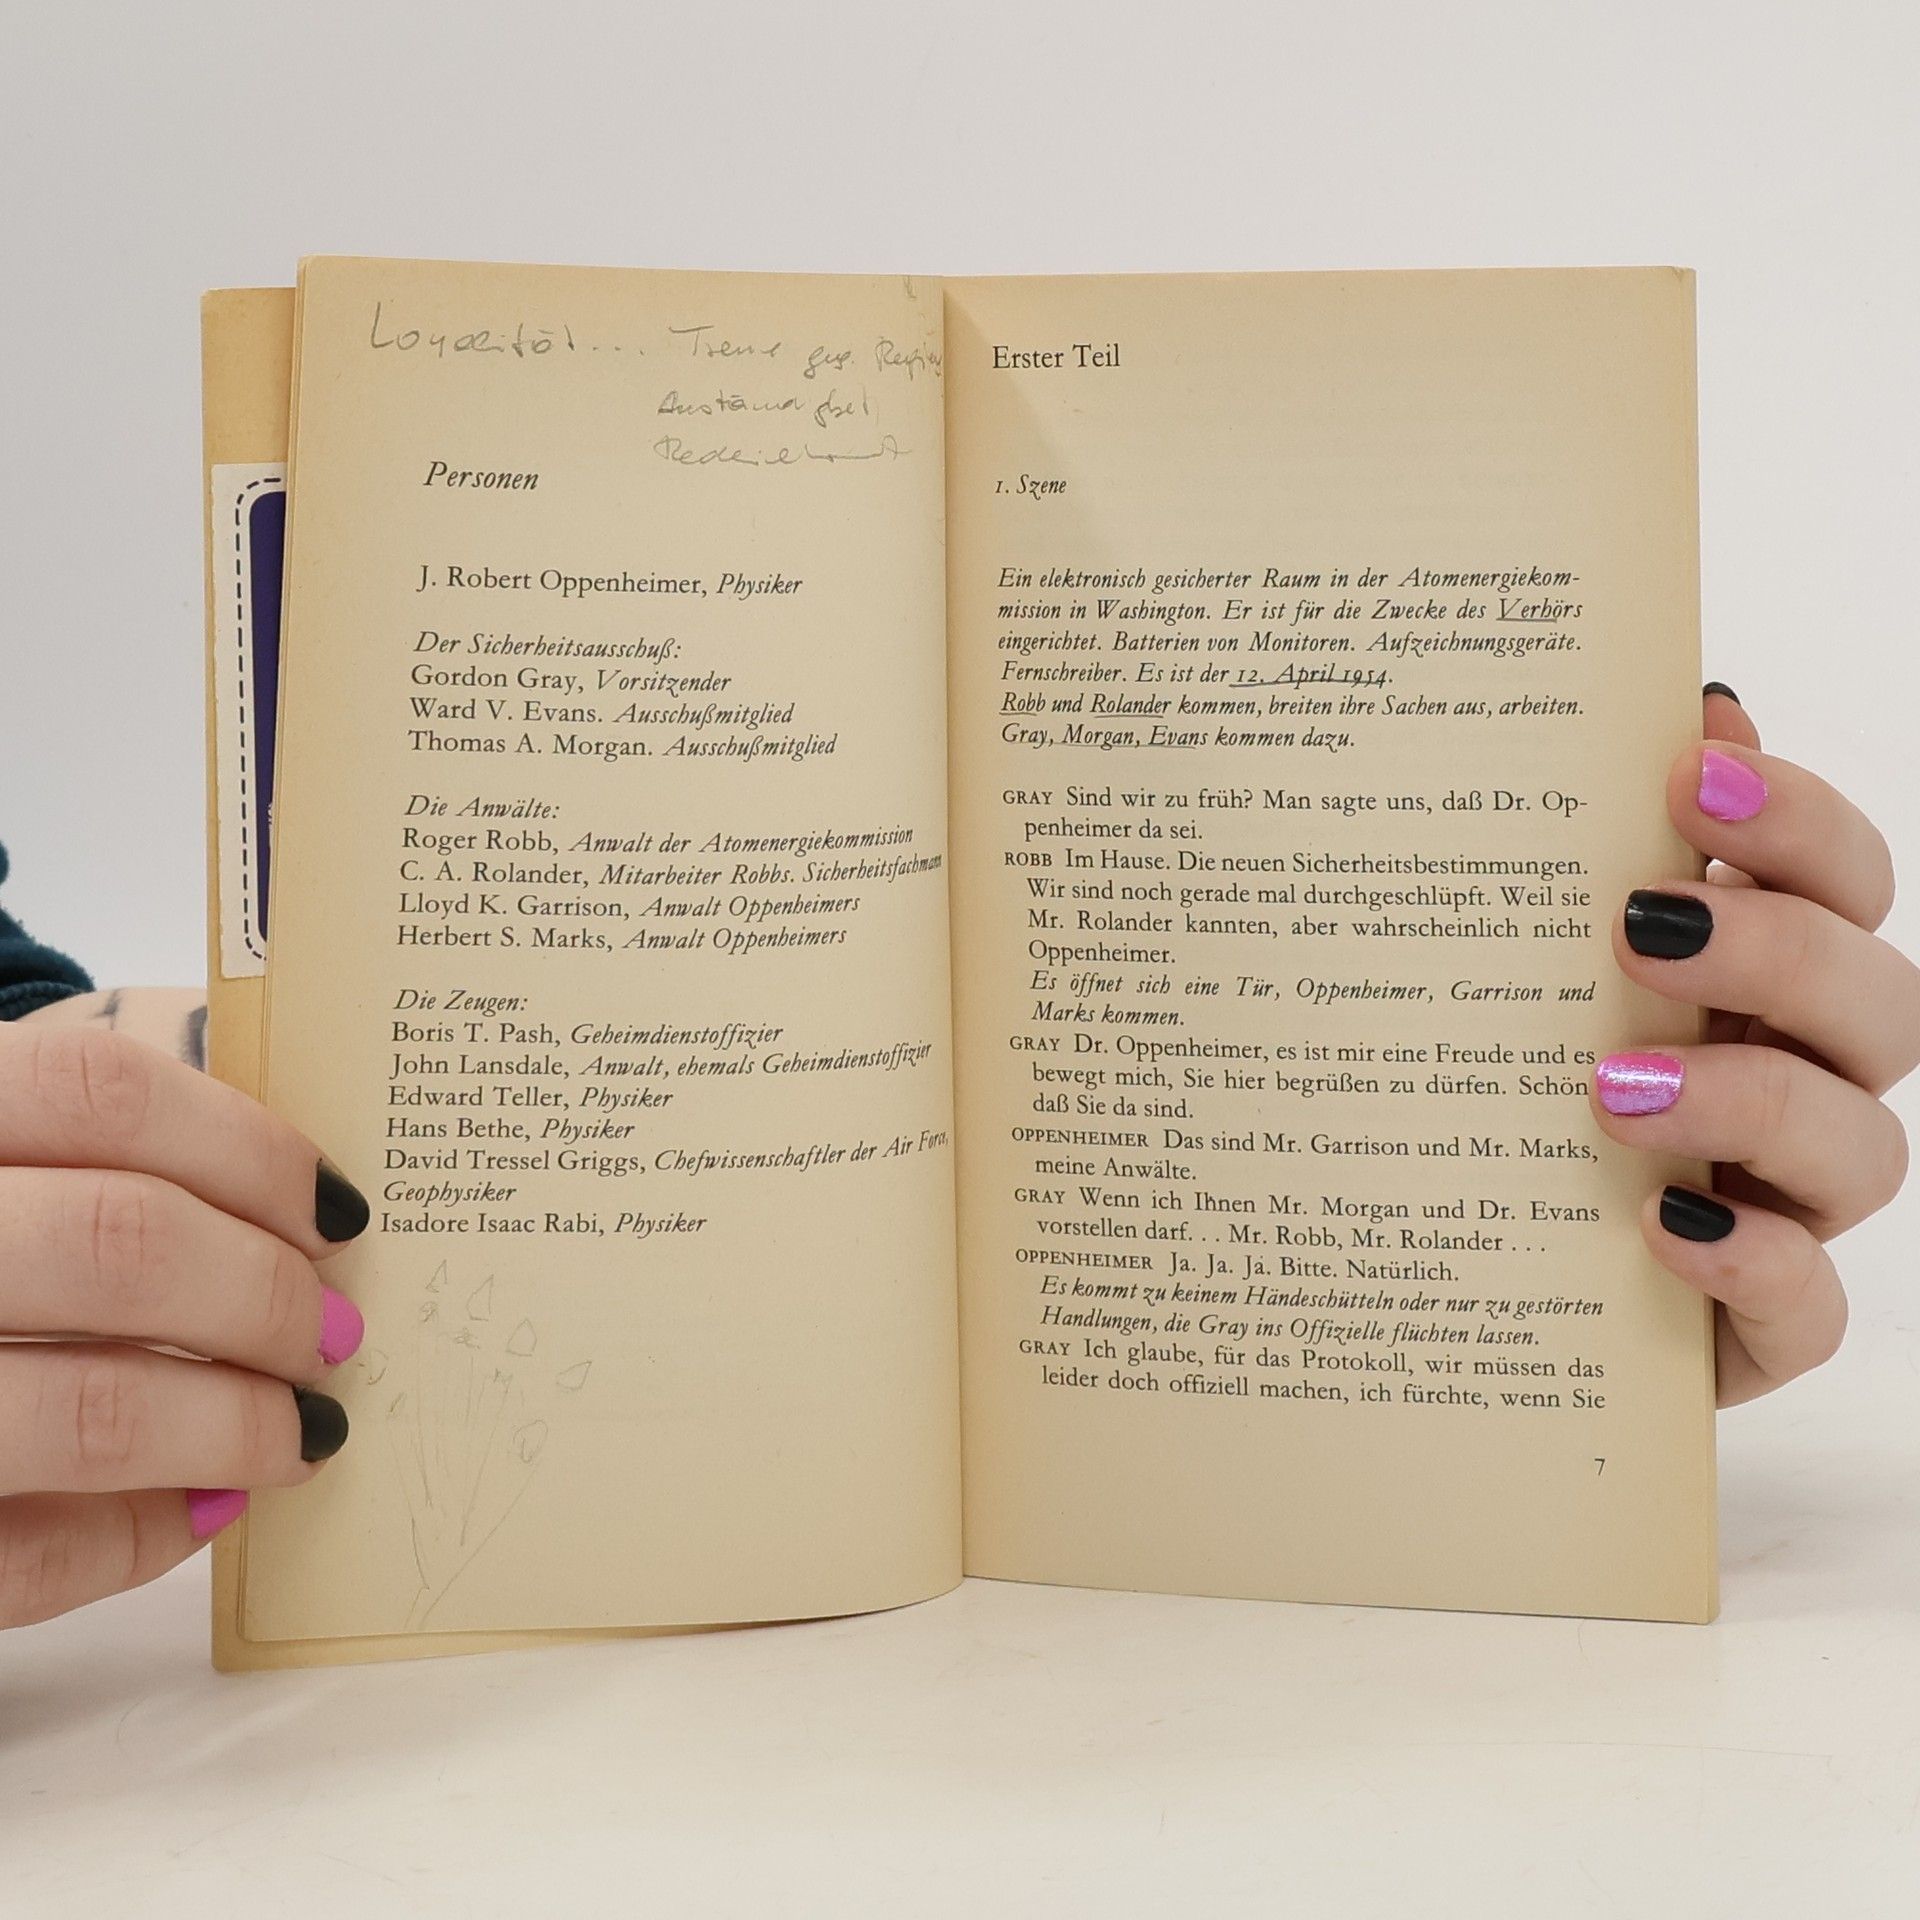 Loyalität... Treue geg. Regierg
Anständigkeit
Personen
J. Robert Oppenheimer, Physiker
Der Sicherheitsausschuß:
Gordon Gray, Vorsitzender
Ward V. Evans. Ausschußmitglied
Thomas A. Morgan. Ausschußmitglied
Die Anwälte:
Roger Robb, Anwalt der Atomenergiekommission
C. A. Rolander, Mitarbeiter Robbs. Sicherheitsfachmann
Lloyd K. Garrison, Anwalt Oppenheimers
Herbert S. Marks, Anwalt Oppenheimers
Die Zeugen:
Boris T. Pash, Geheimdienstoffizier
John Lansdale, Anwalt, ehemals Geheimdienstoffizier
Edward Teller, Physiker
Hans Bethe, Physiker
David Tressel Griggs, Chefwissenschaftler der Air Force,
Geophysiker
Isadore Isaac Rabi, Physiker
Erster Teil
1. Szene
Ein elektronisch gesicherter Raum in der Atomenergiekom-
mission in Washington. Er ist für die Zwecke des Verhörs
eingerichtet. Batterien von Monitoren. Aufzeichnungsgeräte.
Fernschreiber. Es ist der 12. April 1954.
Robb und Rolander kommen, breiten ihre Sachen aus, arbeiten.
Gray, Morgan, Evans kommen dazu.
GRAY Sind wir zu früh? Man sagte uns, daß Dr. Op-
penheimer da sei.
ROBB Im Hause. Die neuen Sicherheitsbestimmungen.
Wir sind noch gerade mal durchgeschlüpft. Weil sie
Mr. Rolander kannten, aber wahrscheinlich nicht
Oppenheimer.
Es öffnet sich eine Tür, Oppenheimer, Garrison und
Marks kommen.
GRAY Dr. Oppenheimer, es ist mir eine Freude und es
bewegt mich, Sie hier begrüßen zu dürfen. Schön
daß Sie da sind.
OPPENHEIMER Das sind Mr. Garrison und Mr. Marks,
meine Anwälte.
GRAY Wenn ich Ihnen Mr. Morgan und Dr. Evans
vorstellen darf. . . Mr. Robb, Mr. Rolander . . .
OPPENHEIMER Ja. Ja. Ja. Bitte. Natürlich.
Es kommt zu keinem Händeschütteln oder nur zu gestörten
Handlungen, die Gray ins Offizielle flüchten lassen.
GRAY Ich glaube, für das Protokoll, wir müssen das
leider doch offiziell machen, ich fürchte, wenn Sie
7